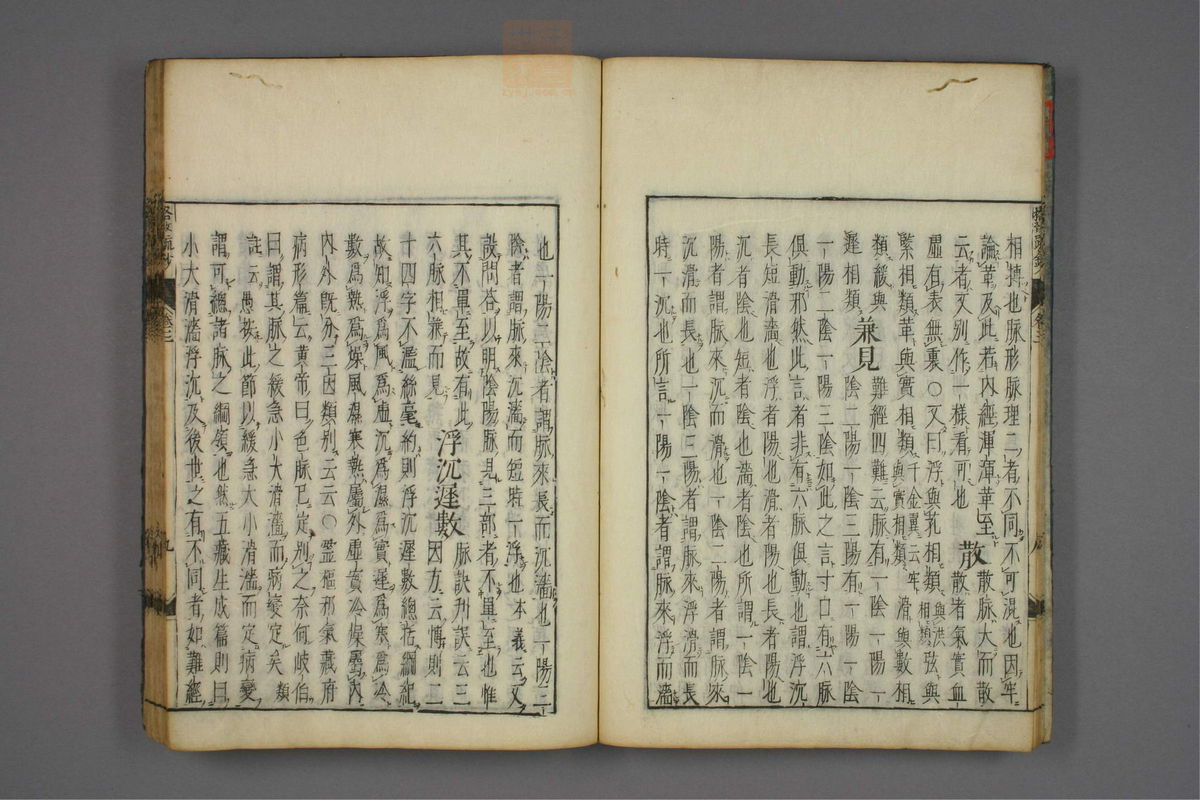 相搏也脉形脉理二者不同不可混也因牢
論革及此若内經渾渾革至 散 散脉大而散
云者又別作一樣看可也 散者氣實血
虚有表無裏○又曰浮與芤相類 與洪相類 弦與
緊相類革與實相類 千金翼云牢與實相類 滑與數相
類緩與
遲相類 兼見 難經四難云脉有一陰一陽一
陰二陽一陰三陽有一陽一陰
一陽二陰一陽三陰如此之言寸口有六脉
俱動邪然此言者非有六脉俱動也謂浮沉
長短滑濇也浮者陽也滑者陽也長者陽也
沉者陰也短者陰也濇者陰也所謂一陰一
陽者謂脉來沉而滑也一陰二陽者謂脉來
沉滑而長也一陰三陽者謂脉來浮滑而長
時一沉也所言一陽一陰者謂脉來浮而濇
也一陽二陰者謂脉來長而沉濇也一陽三
陰者謂脉來沉濇而短時一浮也本義云又
設問答以明陰陽脉見三部者不單至也惟
其不單至故有此
六脉相兼而見 浮沉遲數 脉訣刋誤云三
因方云博則二
十四字不濫絲毫約則浮沉遲數總括綱紀
故知浮爲風爲虚沉爲濕爲實遲爲寒爲冷
數爲熱爲燥風濕寒熱屬外虚實冷燥屬内
内外既分三因類別云云○靈樞邪氣藏府
病形篇云黄帝曰色脉已定別之奈何岐伯
曰謂其脉之緩急小大滑濇而病變定矣類
註云愚按此節以緩急大小滑濇而定病變
謂可總諸脉之綱領也然五藏生成篇則曰
小大滑濇浮沉及後世之有不同者如難經